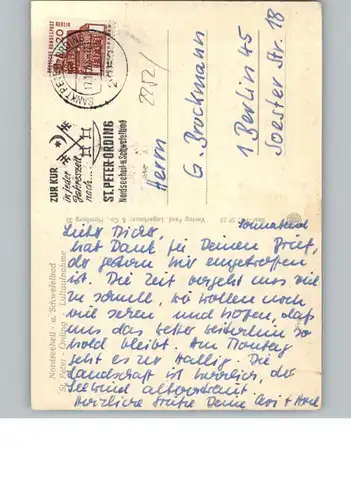 DEUTSCHE BUNDESPOST BERLIN
20
SANKT PETER-ORDING
ZUR KUR
in jeder
Jahreszeit
nach...
ST. PETER-ORDING
Nordseeheil- u. Schwefelbad
2252
Herrn
G. Brockmann
1 Berlin 45
Soester Str. 18
Nordseeheil- u. Schwefelbad
St. Peter - Ording · Luftaufnahme
Verlag Ferd. Lagerbauer & Co., Hamburg
Sonnabend
Lieber Dicker,
hab Dank für Deinen Brief,
der gestern hier eingetroffen
ist. Die Zeit vergeht uns viel
zu schnell, wir wollen noch
viel sehen und hoffen, daß
uns das Wetter weiterhin so
hold bleibt. Am Montag
geht es zur Hallig. Die
Landschaft ist herrlich, der
Seewind
Herzliche Grüße Deine